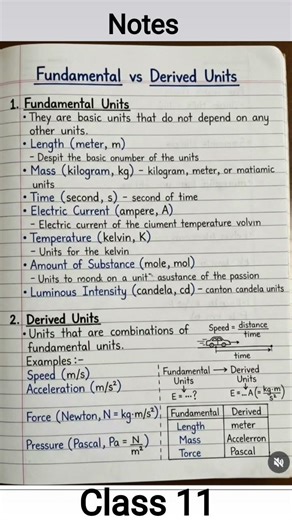 Notes
Fundamental vs Derived Units
1. Fundamental Units
• They are basic units that do not depend on any
other units.
• Length (meter, m)
– Despit the basic onumber of the units
• Mass (kilogram, kg) – kilogram, meter, or matiamic
units
• Time (second, s) – second of time
• Electric Current (ampere, A)
– Electric current of the ciument temperature volvin
• Temperature (kelvin, K)
– Units for the kelvin
• Amount of Substance (mole, mol)
– Units to mond on a unit asustance of the passion
• Luminous Intensity (candela, cd) – canton candela units
2. Derived Units
• Units that are combinations of
fundamental units.
Speed = distance/time
time
Examples :-
Speed (m/s)
Acceleration (m/s²)
Fundamental → Derived
Units Units
E = ...? E = ...A (= kg·m/s²)
Force (Newton, N = kg·m/s²)
Pressure (Pascal, Pa = N/m²)
Fundamental Derived
Length meter
Mass Accelerron
Torce Pascal
Class 11